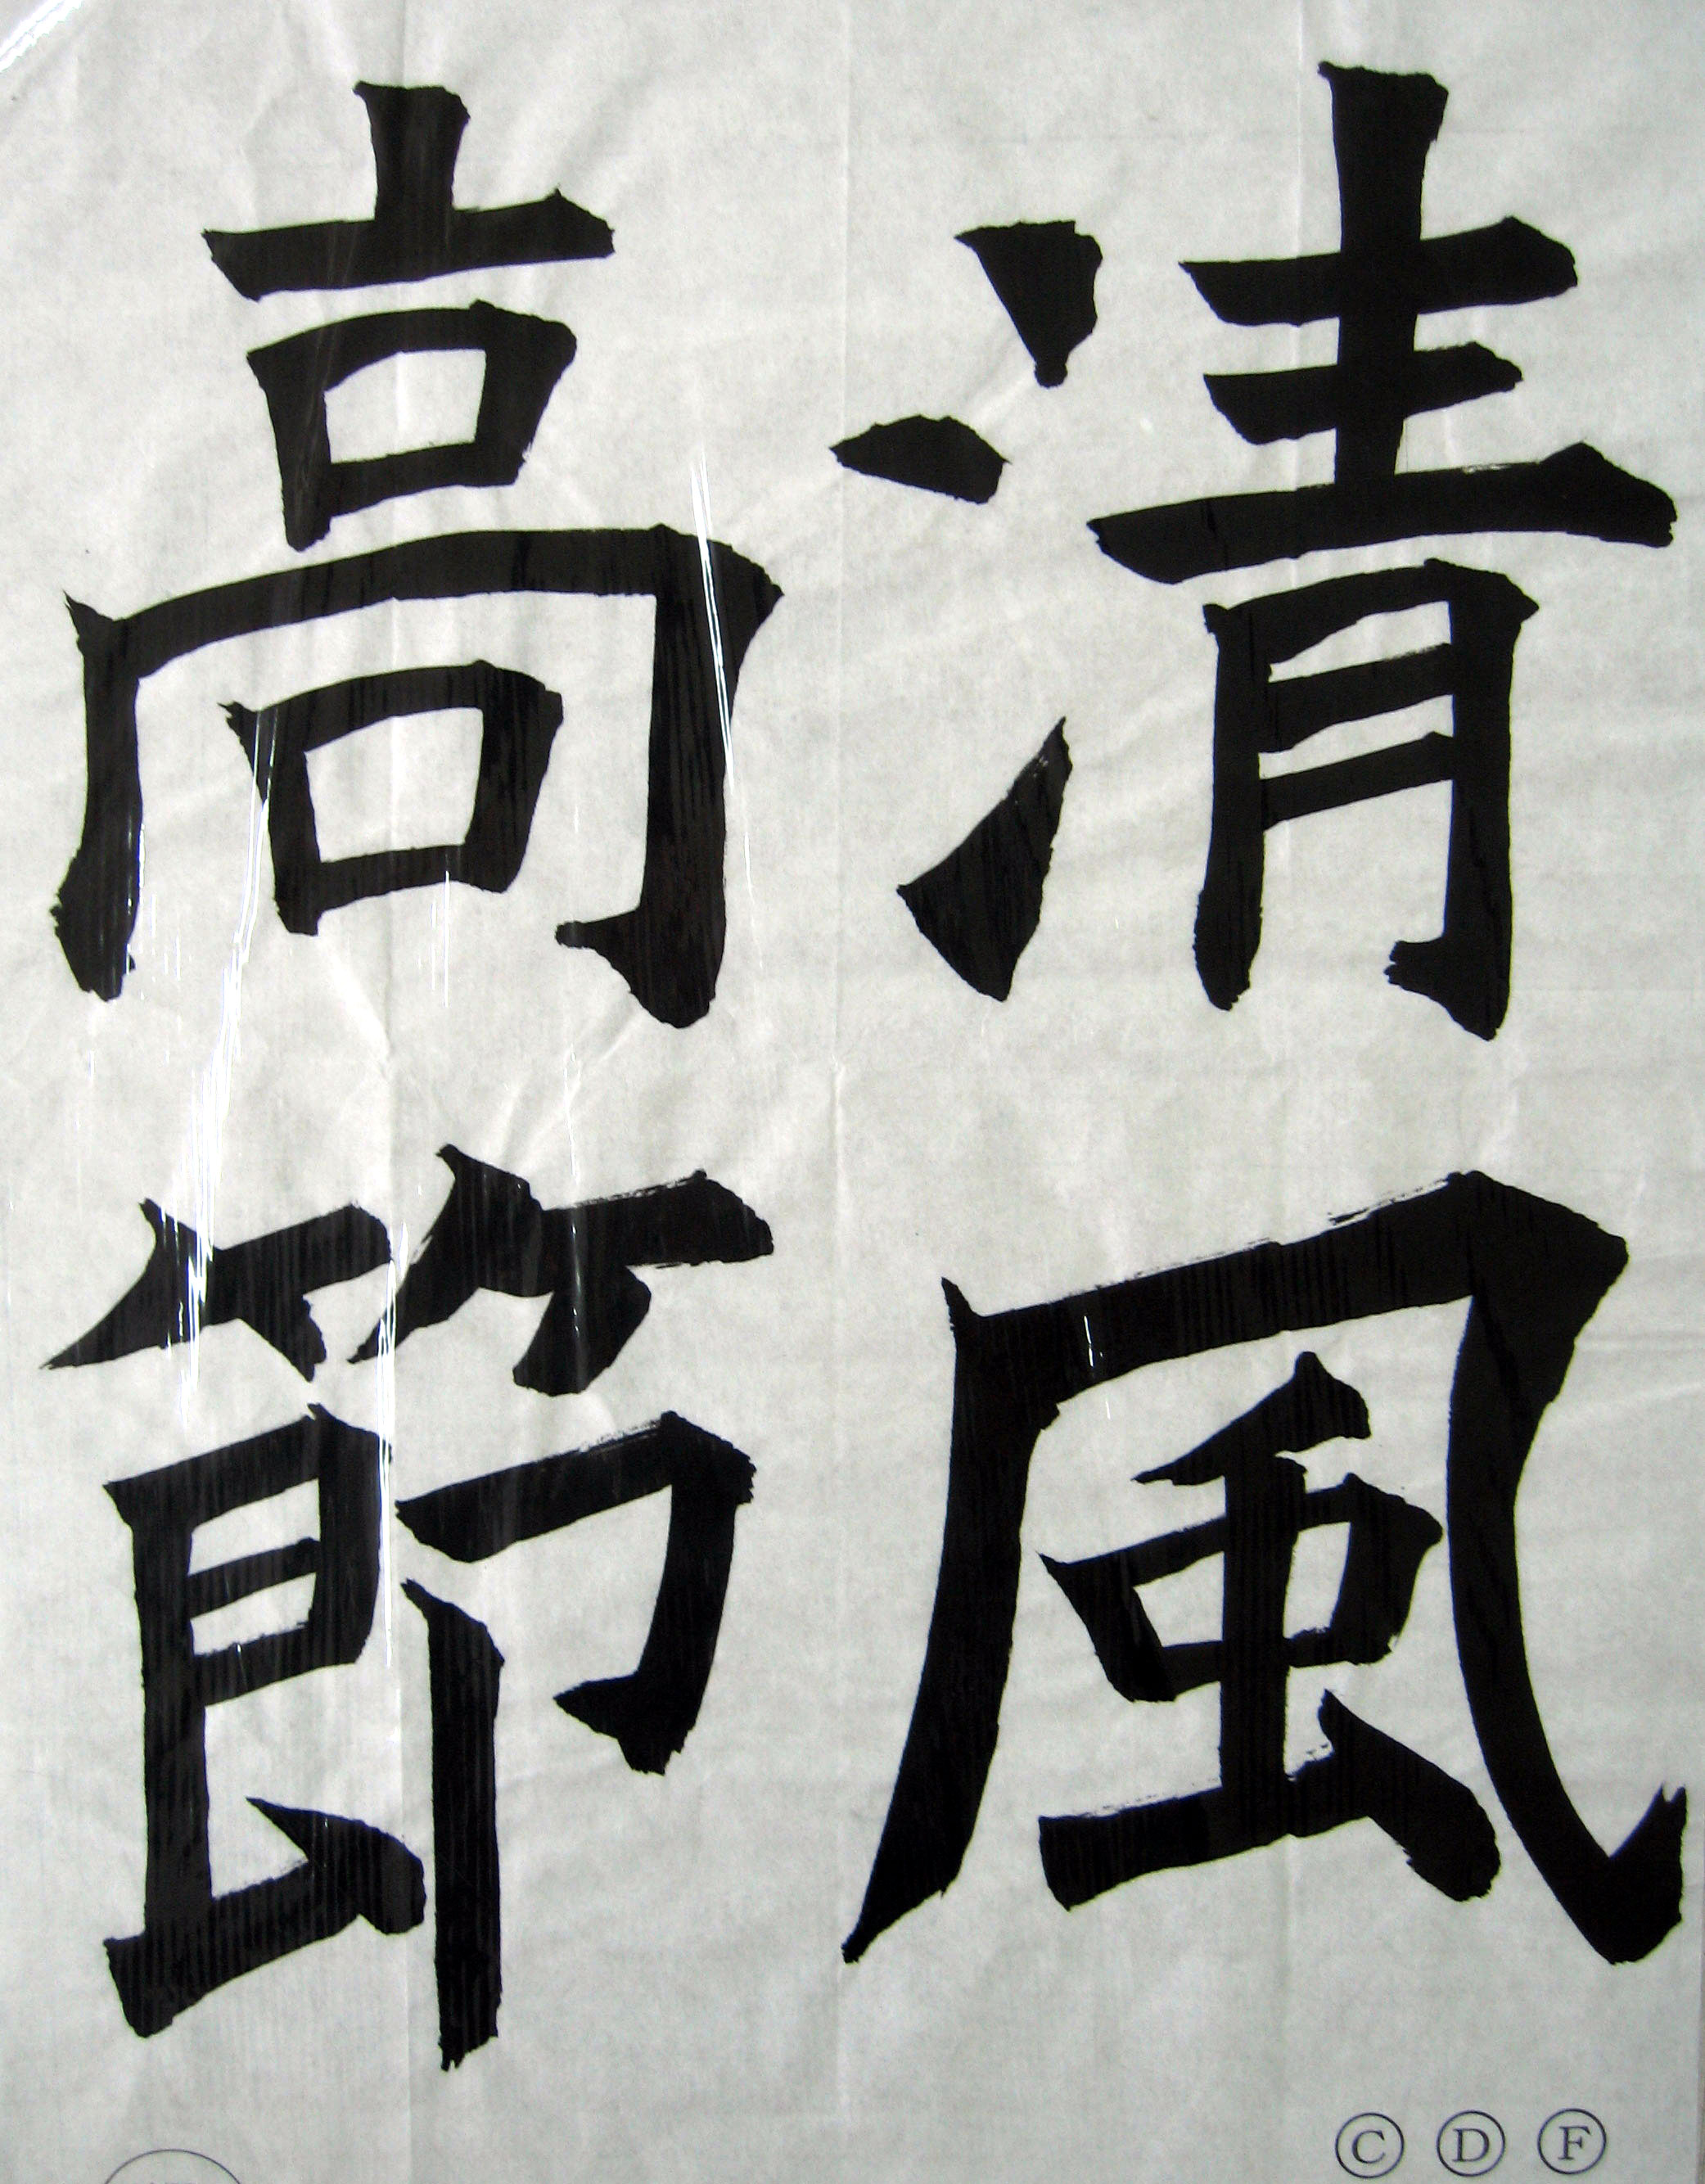 清風
高節
Ⓒ Ⓓ Ⓕ